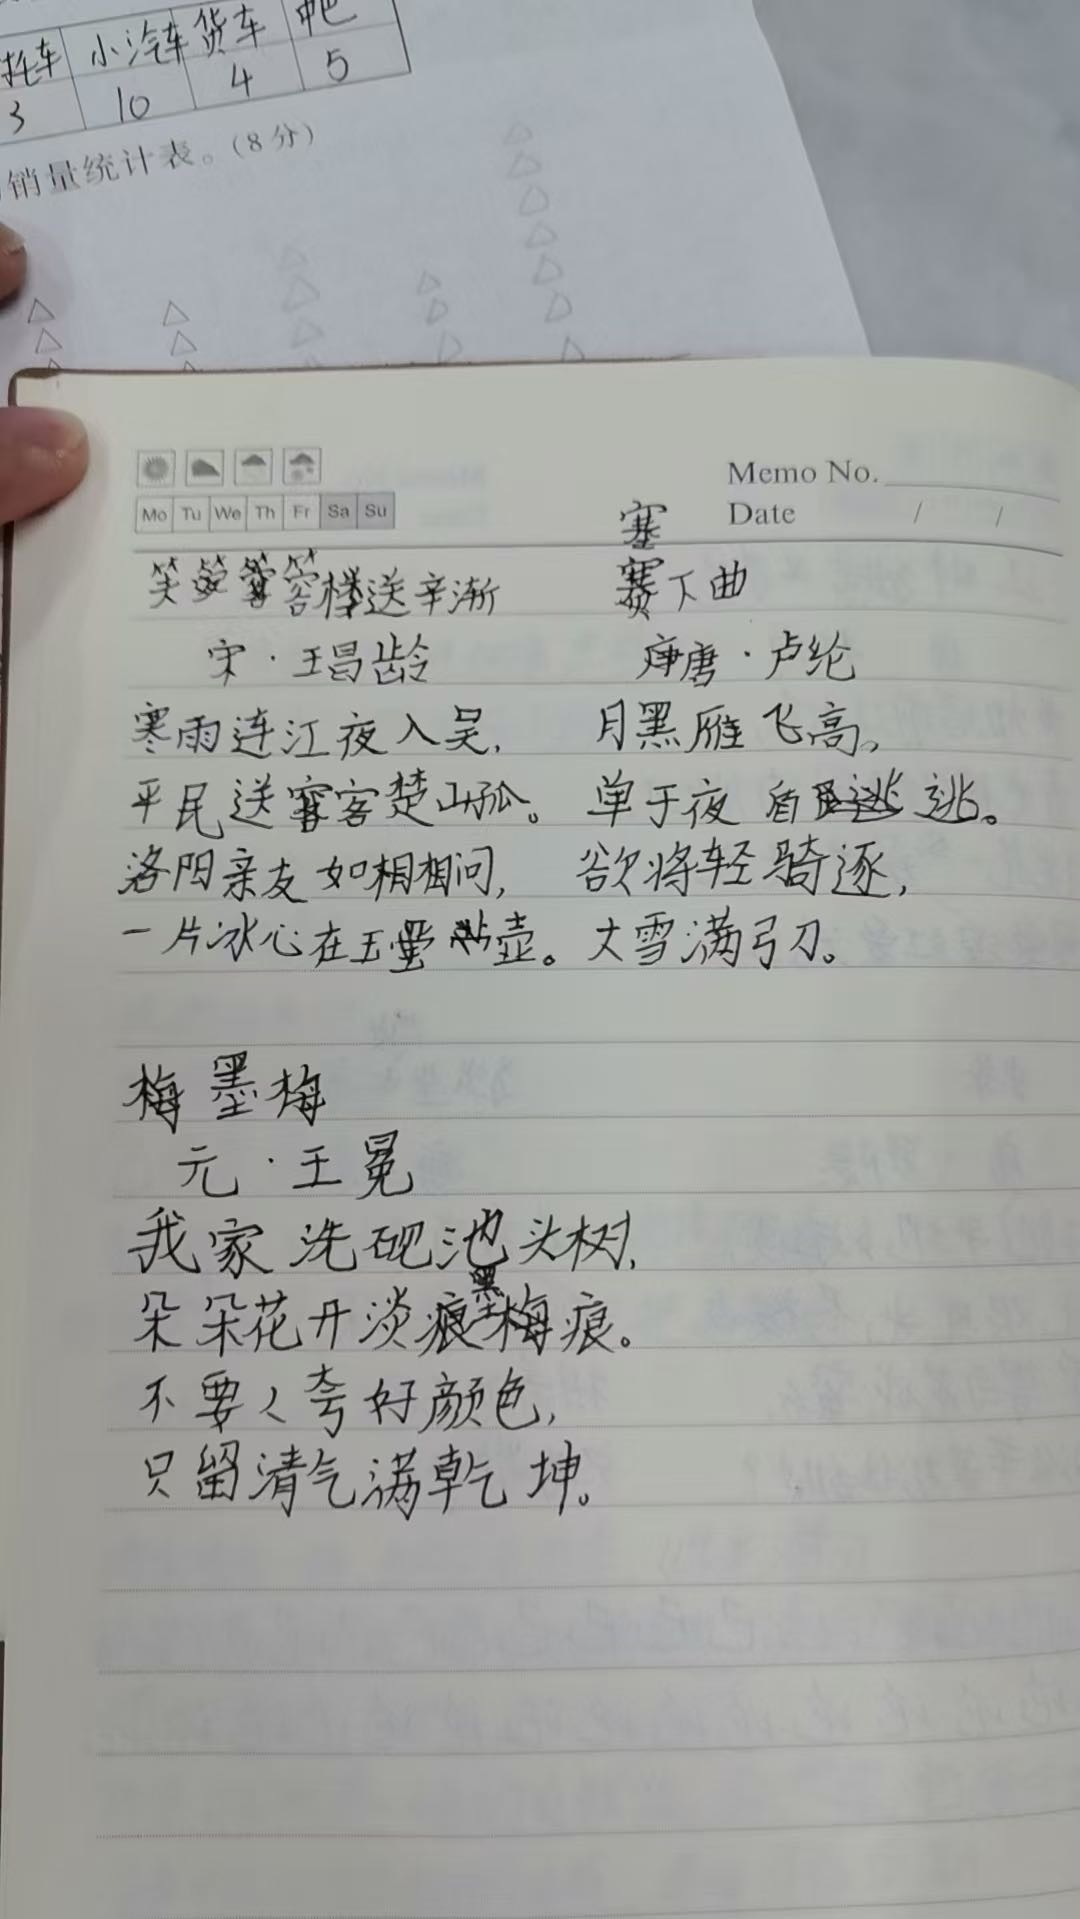 托车 小汽车 货车 中巴
3 10 4 5
销量统计表。(8分)
Memo No.
Mo Tu We Th Fr Sa Su
Date / /
塞
容楼送辛渐
宋·王昌龄
寒雨连江夜入吴,
平民送客楚山孤。
洛阳亲友如相相问,
一片冰心在玉壶。
赛下曲
唐·卢纶
月黑雁飞高。
单于夜盾逃。
欲将轻骑逐,
大雪满弓刀。
梅墨梅
元·王冕
我家洗砚池头树,
朵朵花开淡痕墨梅痕。
不要人夸好颜色,
只留清气满乾坤。